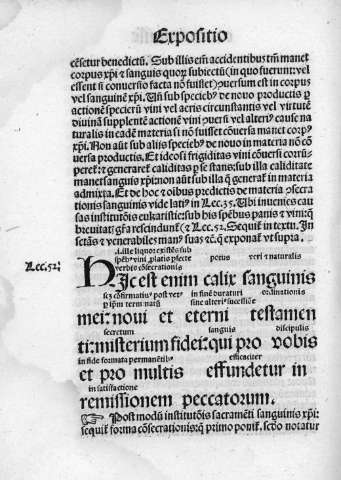 Expositio
cēsetur benedictū. Sub illis em̄ accidentibus tm̄ manet
corpus xp̄i ⁊ sanguis quoꝝ subiectū (in quo fuerunt: vel
essent si conuersio facta nō fuisset) ꝯuersum est in corpus
vel sanguinē xp̄i. Un̄ sub speciebꝰ de nouo productis ꝑ
actionē specieꝝ vini vel aeris circunstantis vel virtutē
diuinā supplentē actionē vini ꝯuersi vel alteriꝰ cause na
turalis in eadē materia si nō fuisset cōuersa manet corpꝰ
xp̄i. Non aūt sub aliis speciebꝰ de nouo in materia nō cō
uersa productis. Et ideo si frigiditas vini cōuersi corrū
peret ⁊ generaret caliditas ꝑ se stans: sub illa caliditate
manet sanguis xp̄i: non aūt sub illa q̄ generat̄ in materia
admixta. Et de hoc ⁊ oībus predictis de materia ꝯsecra
tionis sanguinis vide latiꝰ in Lec. 35. Ubi inuenies cau
sas institutōis eukaristie: sub his spēbus panis ⁊ vini: q̄
breuitatis gr̄a rescindunt̄ (⁊ Lec. 52. Sequit̄ in textu. In
sctās ⁊ venerabiles manꝰ suas ⁊c. q̄ exponant̄ vt supra.
i. ille liquor existēs sub
spēbꝰ vini ꝓlatis ꝑfecte potus veri ⁊ naturalis
Lec. 52. verbis cōsecrationis
HIc est enim calix sanguinis
scꝫ cōfirmatiuꝰ post vetꝰ in fine duraturi ordinationis
ꝑ ip̄m term natū sine alteriꝰ successiōe
mei: noui et eterni testamen
secretum sanguis discipulis
ti: misterium fidei: qui pro vobis
in fide formata permanētibꝰ efficaciter
et pro multis effundetur in
in satisfactione
remissionem peccatorum.
☞ Post modū institutōis sacramēti sanguinis xp̄i:
sequit̄ forma cōsecrationis: q̄ primo ponit̄. scd̄o notatur